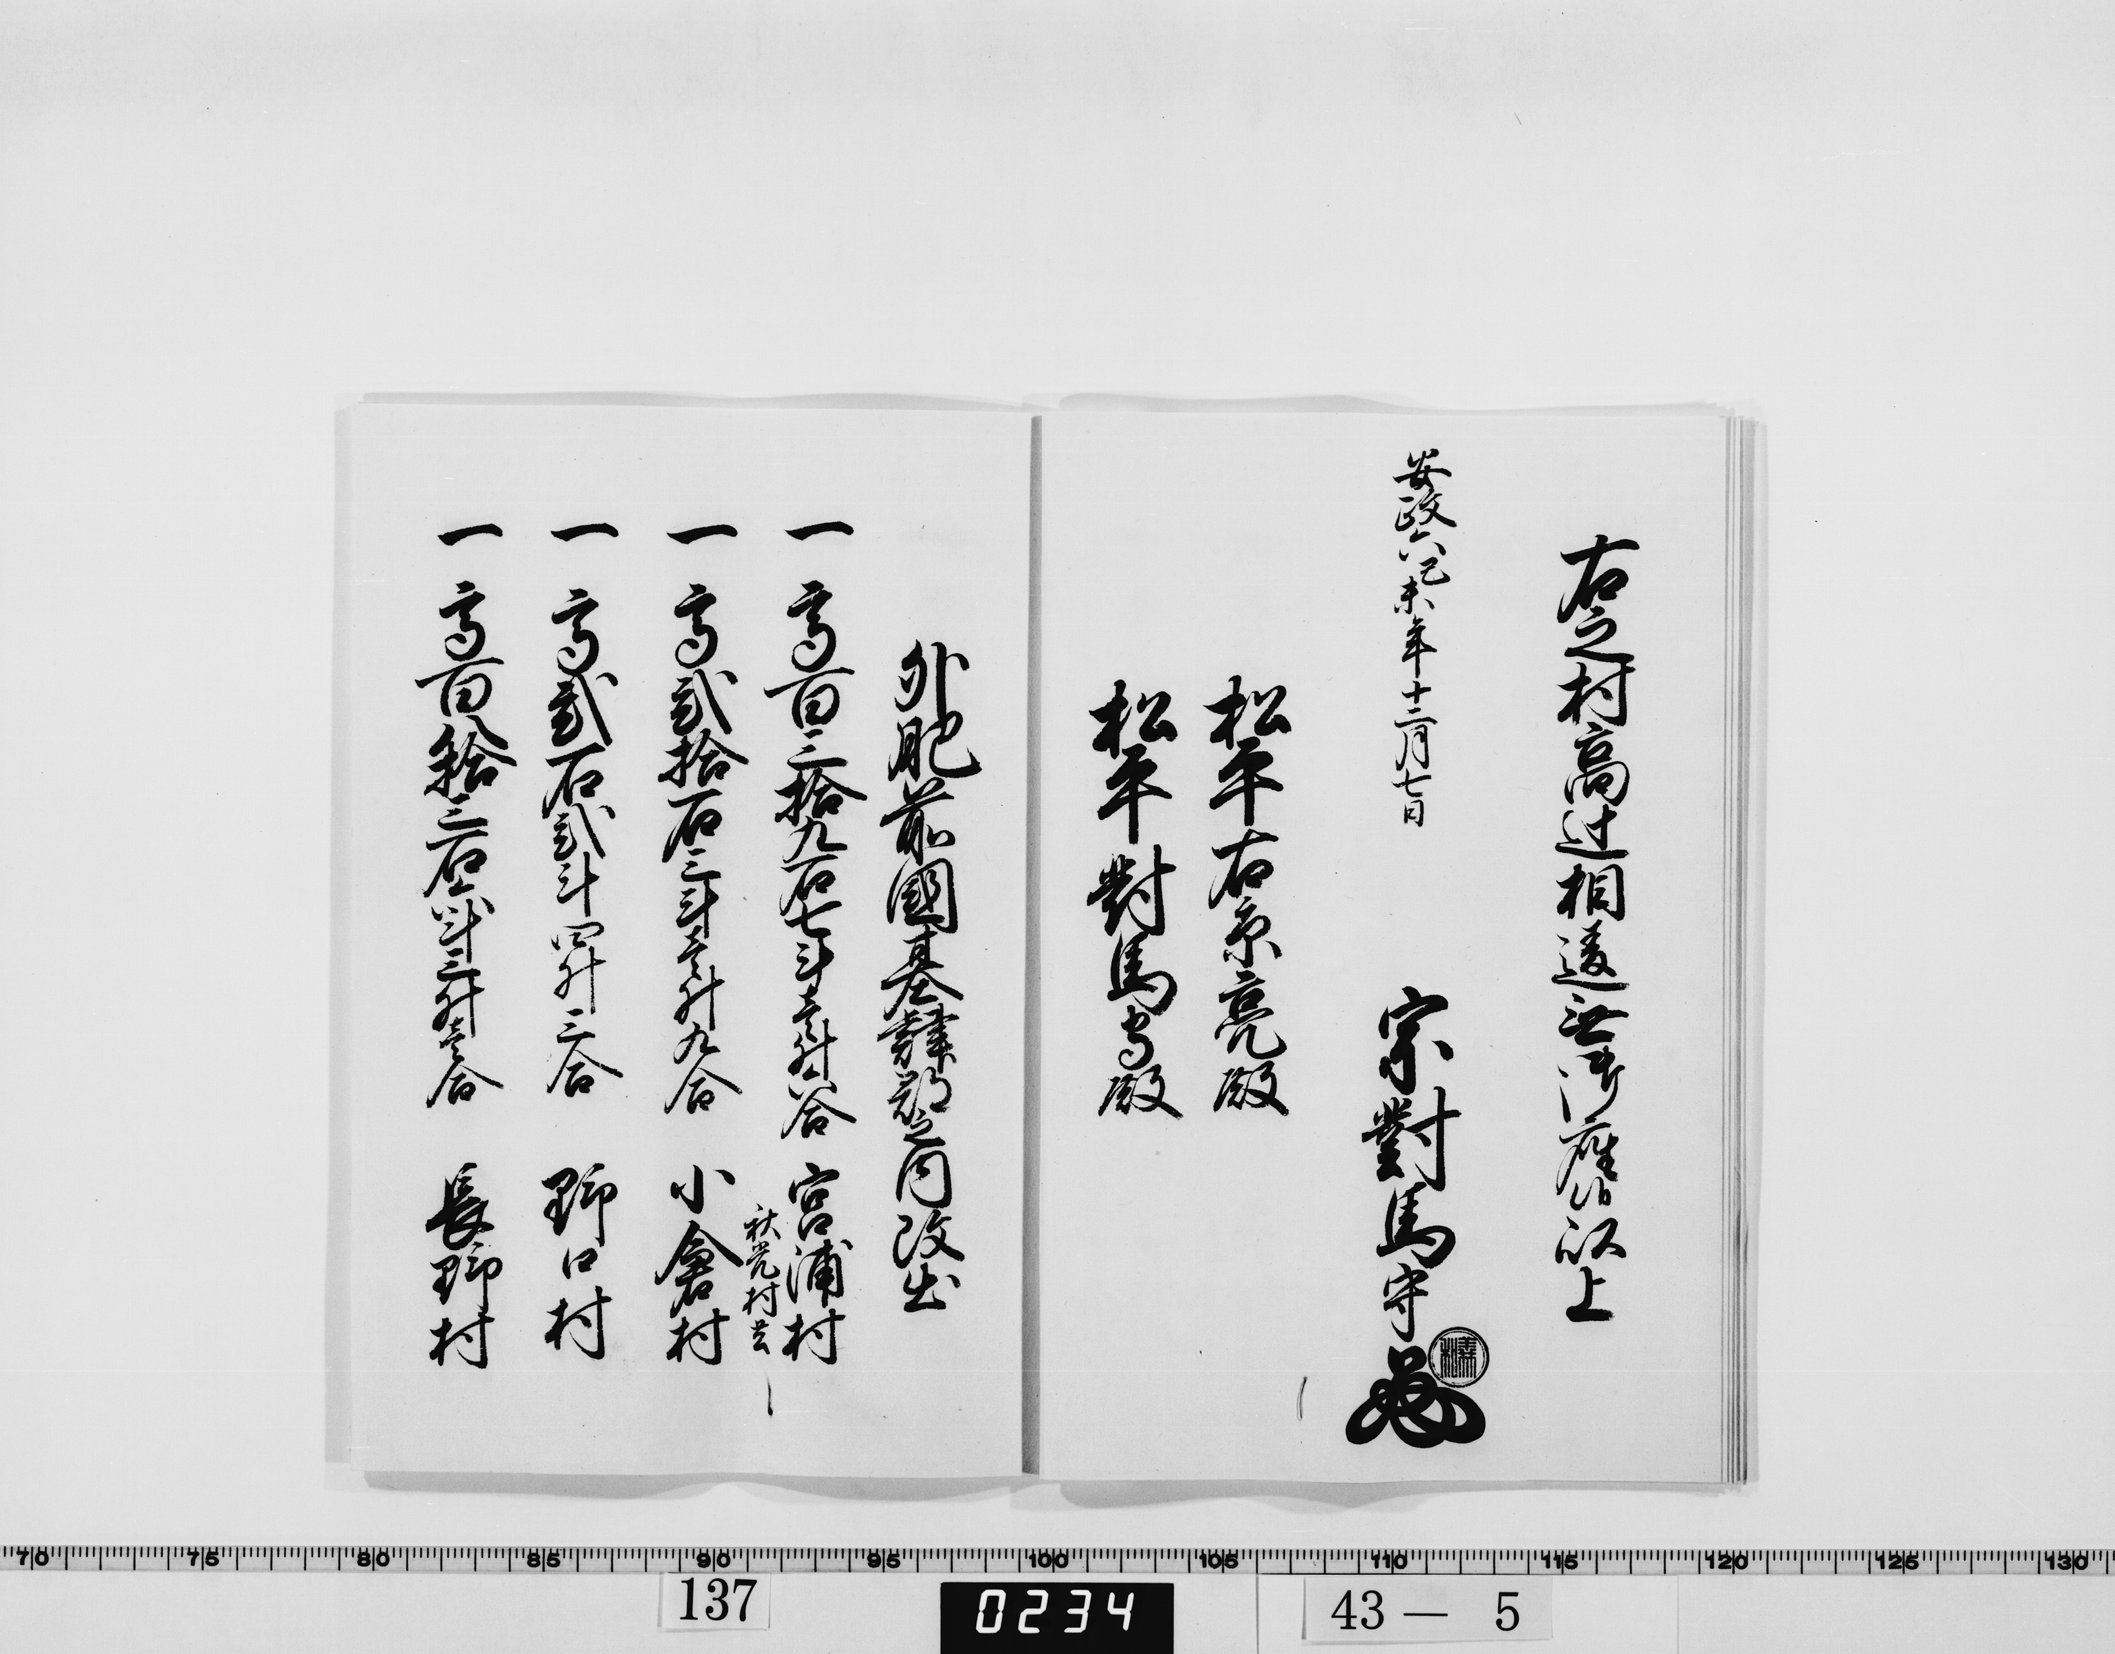 右之村高辻相違無御座候以上
安政六己未年十二月七日
宗對馬守
松平右京亮殿
松平對馬守殿
外肥前國基肄郡之内改出
一高百三拾九石七斗壹升八合 宮浦村
秋光村共
一高貳拾石三斗壹升九合 小倉村
一高貳石貳斗四升三合 野口村
一高百拾三石六斗三升壹合 長野村
70 75 80 85 90 95 100 105 110 115 120 125 130
137
0234
43― 5